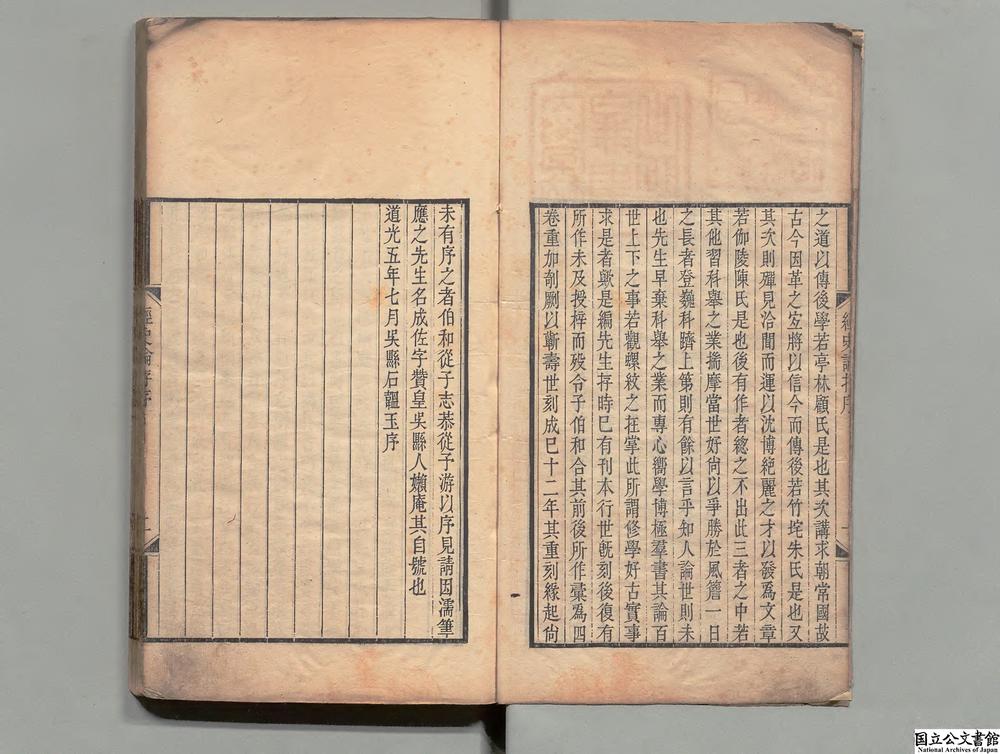 之道以傳後學若亭林顧氏是也其次講求朝常國故
古今因革之宐將以信今而傳後若竹垞朱氏是也又
其次則殫見洽聞而運以沈博絶麗之才以發爲文章
若伽陵陳氏是也後有作者總之不出此三者之中若
其他習科舉之業揣摩當世好尙以爭勝於風簷一日
之長者登巍科躋上第則有餘以言乎知人論世則未
也先生早棄科舉之業而專心嚮學博極羣書其論百
世上下之事若觀螺紋之在掌此所謂修學好古實事
求是者歟是編先生存時巳有刊本行世旣刻後復有
所作未及授梓而殁令子伯和合其前後所作彙爲四
卷重加剞劂以蘄壽世刻成巳十二年其重刻緣起尙
未有序之者伯和從子志恭從予游以序見請因濡筆
應之先生名成佐字贊皇吳縣人嬾庵其自號也
道光五年七月吳縣石韞玉序
經史論存序
二
國立公文書館
National Archives of Japan